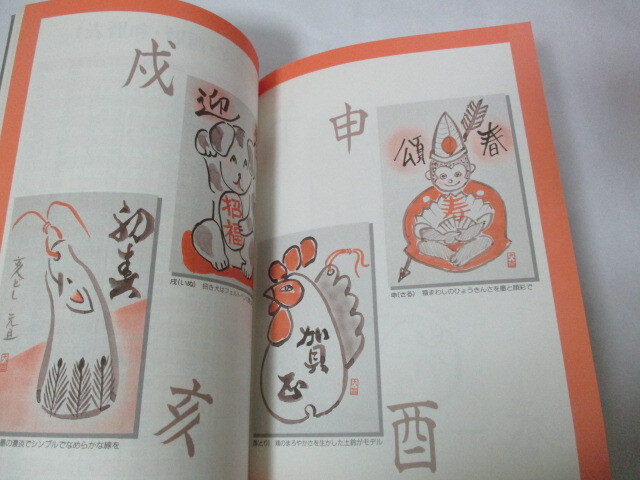 申
頌春
寿
申(さる) 猿まわしのひょうきんさを墨と顔彩で
賀正
鶏のまろやかさを生かした土鈴がモデル
酉
戌
迎
招福
戌(いぬ)
初春
亥どし 元旦
でシンプルでなめらかな線を
亥